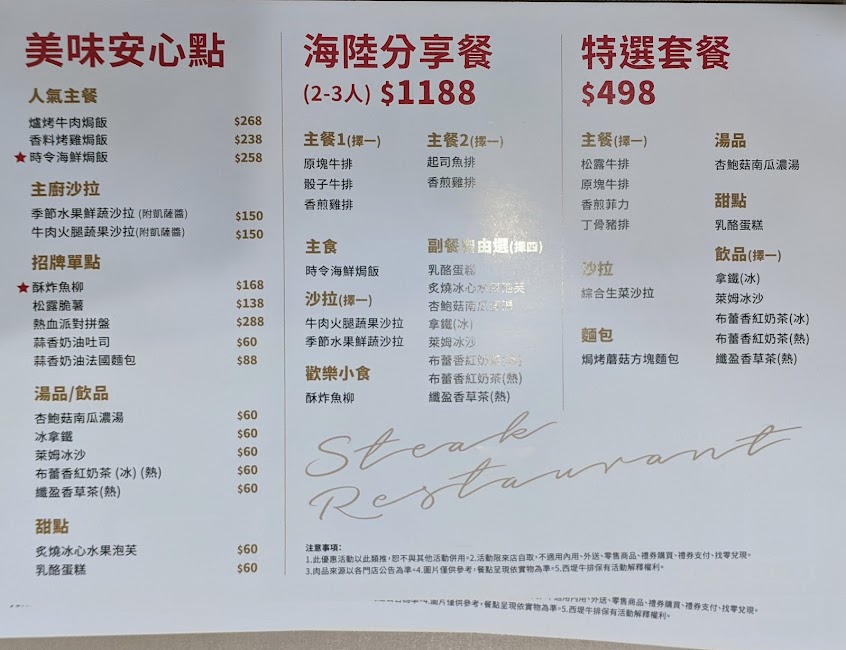 美味安心點
人氣主餐
爐烤牛肉焗飯 $268
香料烤雞焗飯 $238
★時令海鮮焗飯 $258
主廚沙拉
季節水果鮮蔬沙拉 (附凱薩醬) $150
牛肉火腿蔬果沙拉(附凱薩醬) $150
招牌單點
★酥炸魚柳 $168
松露脆薯 $138
熱血派對拼盤 $288
蒜香奶油吐司 $60
蒜香奶油法國麵包 $88
湯品/飲品
杏鮑菇南瓜濃湯 $60
冰拿鐵 $60
萊姆冰沙 $60
布蕾香紅奶茶 (冰) (熱) $60
纖盈香草茶(熱) $60
甜點
炙燒冰心水果泡芙 $60
乳酪蛋糕 $60
海陸分享餐
(2-3人) $1188
主餐1(擇一)
原塊牛排
骰子牛排
香煎雞排
主餐2(擇一)
起司魚排
香煎雞排
主食
時令海鮮焗飯
沙拉(擇一)
牛肉火腿蔬果沙拉
季節水果鮮蔬沙拉
歡樂小食
酥炸魚柳
副餐 由選(擇四)
乳酪蛋糕
炙燒冰心水果泡芙
杏鮑菇南瓜濃湯
拿鐵(冰)
萊姆冰沙
布蕾香紅奶茶(冰)
布蕾香紅奶茶(熱)
纖盈香草茶(熱)
特選套餐
$498
主餐(擇一)
松露牛排
原塊牛排
香煎菲力
丁骨豬排
沙拉
綜合生菜沙拉
麵包
焗烤蘑菇方塊麵包
湯品
杏鮑菇南瓜濃湯
甜點
乳酪蛋糕
飲品(擇一)
拿鐵(冰)
萊姆冰沙
布蕾香紅奶茶(冰)
布蕾香紅奶茶(熱)
纖盈香草茶(熱)
Steak
Restaurant
注意事項:
1.此優惠活動以此類推,恕不與其他活動併用。2.活動限來店自取,不適用內用、外送、零售商品、禮券購買、禮券支付、找零兌現。
3.肉品來源以各門店公告為準。4.圖片僅供參考,餐點呈現依實物為準。5.西堤牛排保有活動解釋權利。
不適用內用、外送、零售商品、禮券購買、禮券支付、找零兌現。
4.圖片僅供參考,餐點呈現依實物為準。5.西堤牛排保有活動解釋權利。